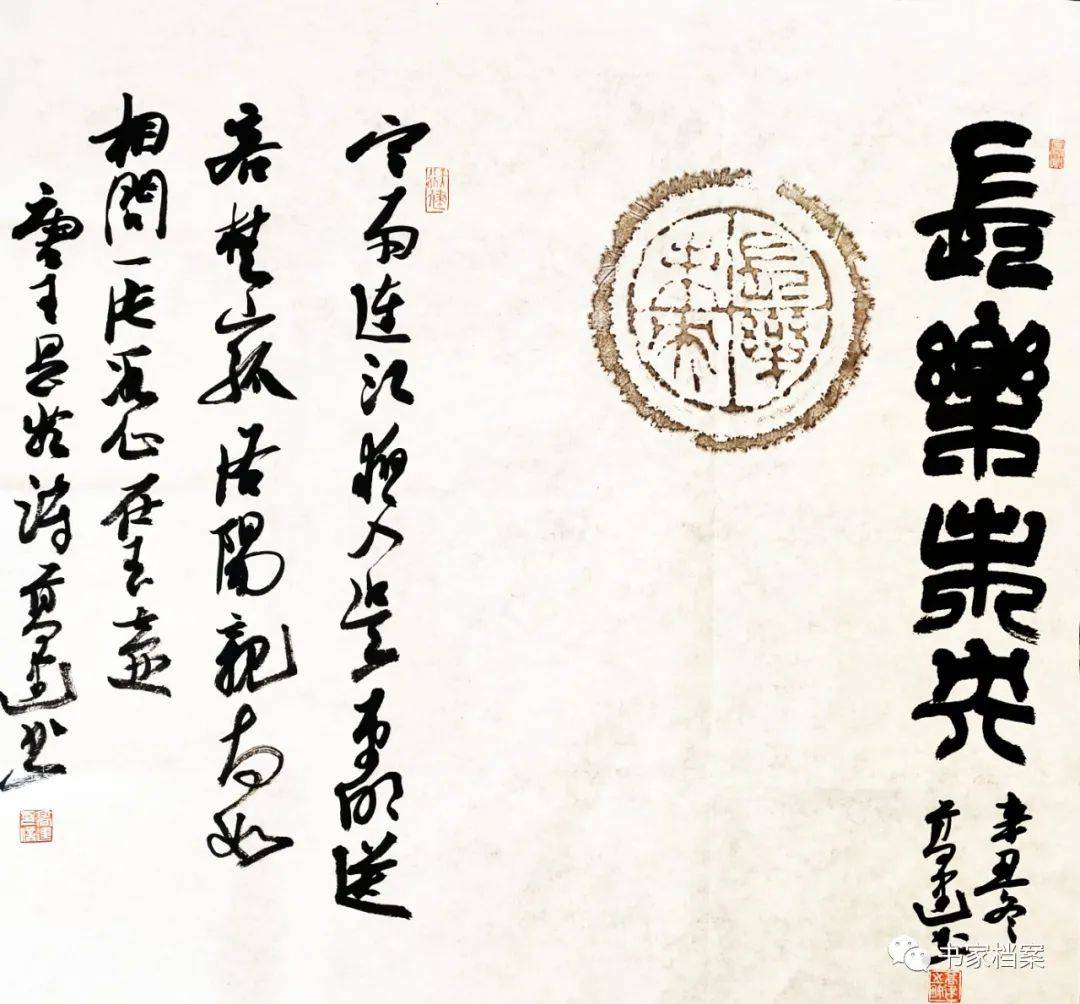 長樂未央
辛丑冬
高建书
長樂未央
寒雨連江夜入吴平明送
客楚山孤洛陽親友如
相問一片冰心在玉壺
唐王昌齡詩高建书
书家档案